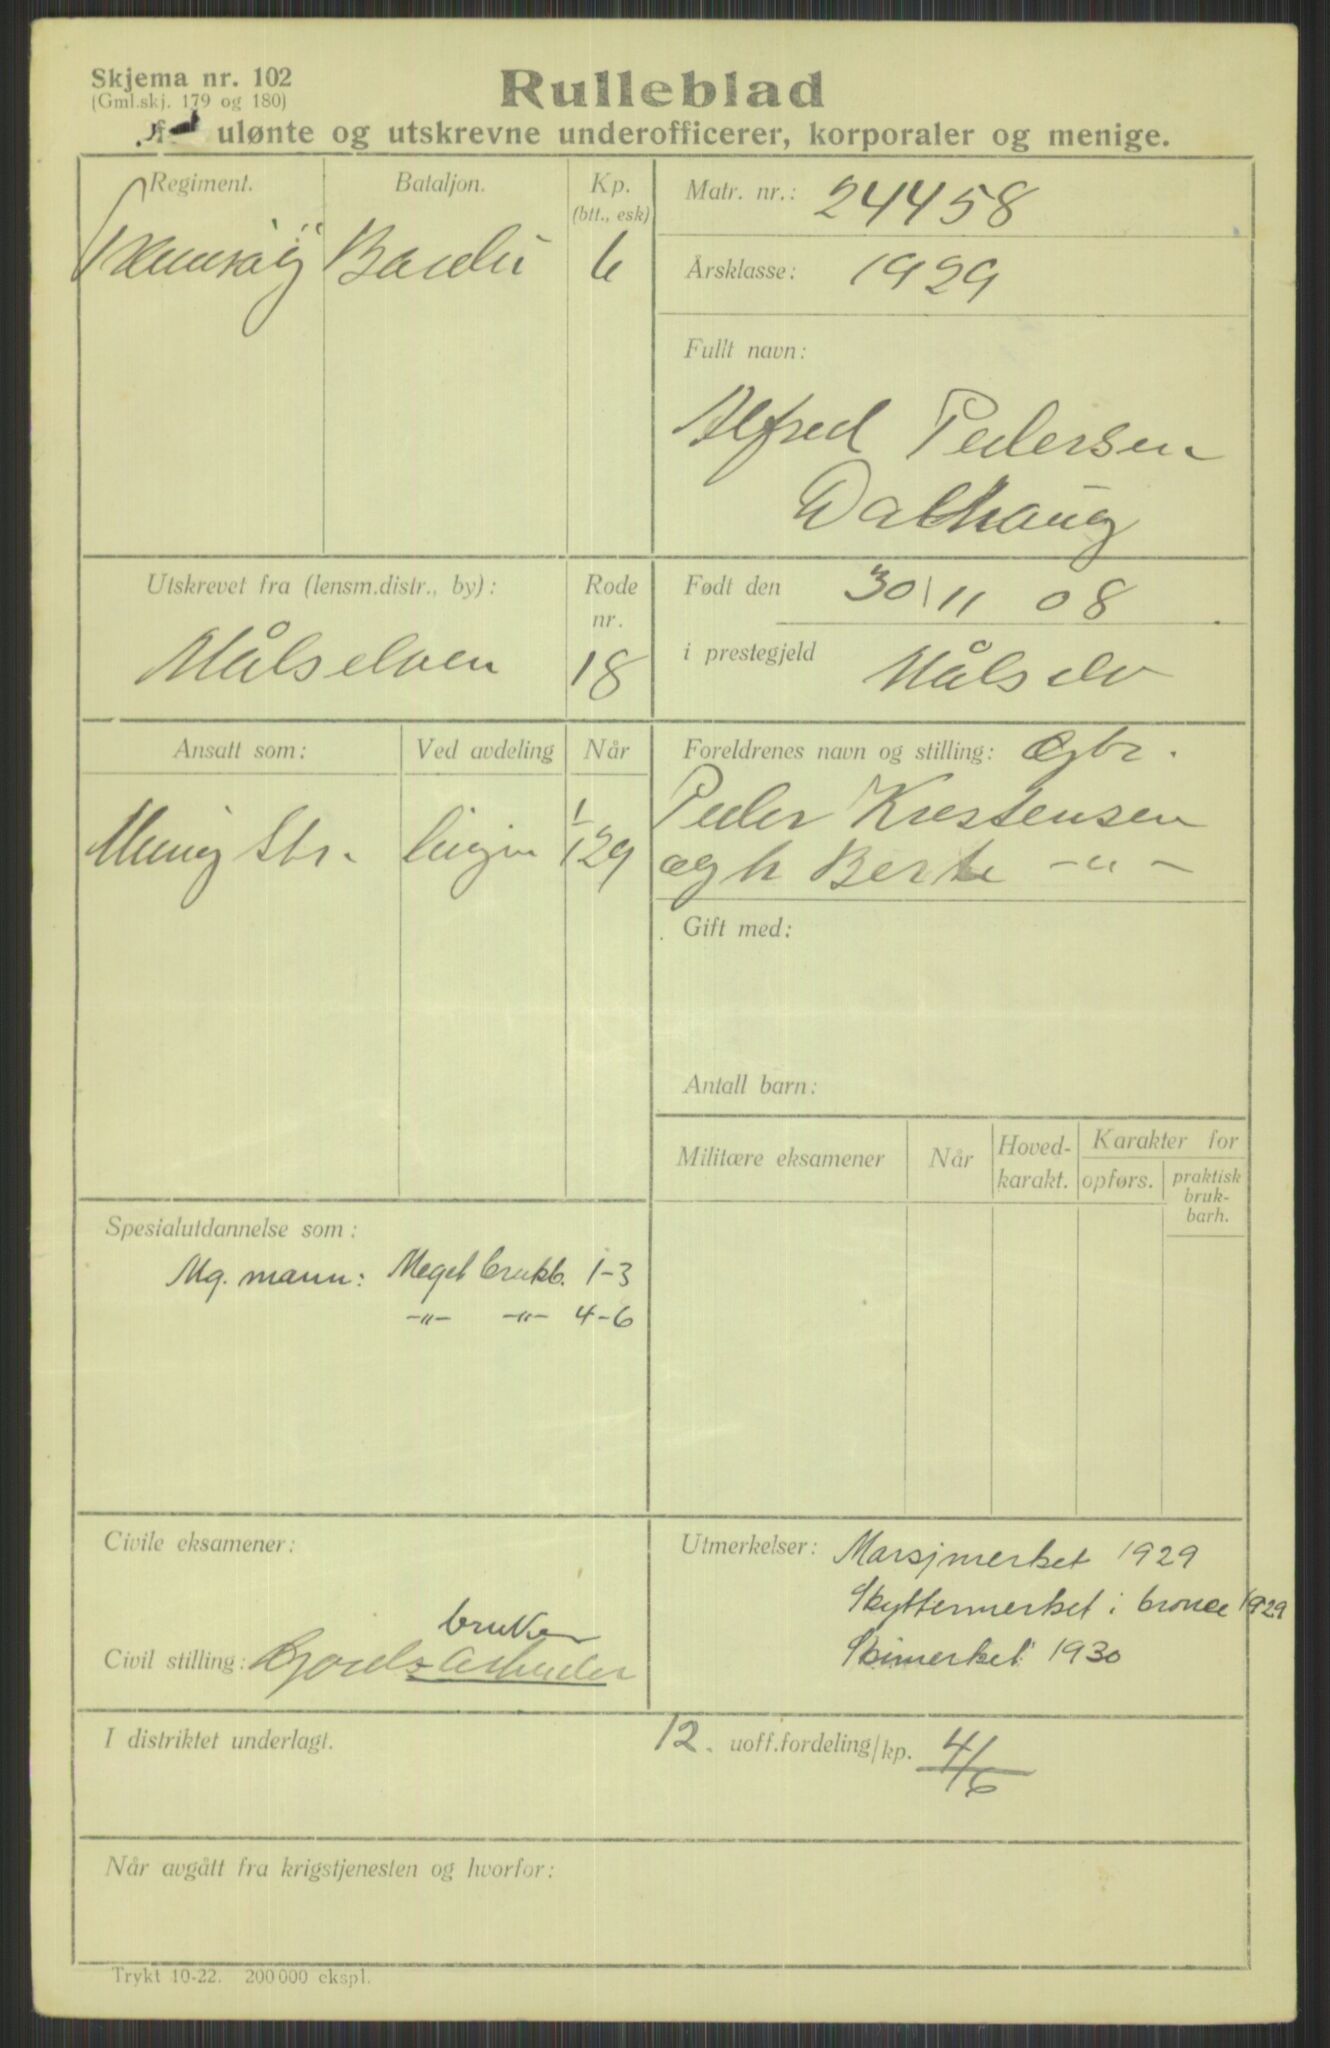 Skjema nr. 102
(Gml.skj. 179 og 180)
Rulleblad
ulønte og utskrevne underofficerer, korporaler og menige.
Regiment. Bataljon. Kp. (btt., esk)
Bardu 6
Matr. nr.: 24458
Årsklasse: 1929
Fullt navn:
Alfred Pedersen
Dalhaug
Utskrevet fra (lensm.distr., by):
Målselven
Rode nr.
18
Født den 30/11 08
i prestegjeld Målselv
Ansatt som: Ved avdeling Når
Menig Str. linjen 1/1 29
Foreldrenes navn og stilling: Gbr.
Peder Krestensen
og h Berte -"-
Gift med:
Antall barn:
Militære eksamener Når Hoved-karakt. Karakter for
opførs. praktisk bruk-barh.
Spesialutdannelse som:
Mg. mann: Meget brukb. 1-3
-"- -"- 4-6
Civile eksamener:
bruker
Civil stilling: Gjords arbeider
Utmerkelser: Marsjmerket 1929
Skyttermerket i bronce 1929
Skimerket 1930
I distriktet underlagt.
12. uoff.fordeling/kp. 4/6
Når avgått fra krigstjenesten og hvorfor:
Trykt 10-22. 200 000 ekspl.